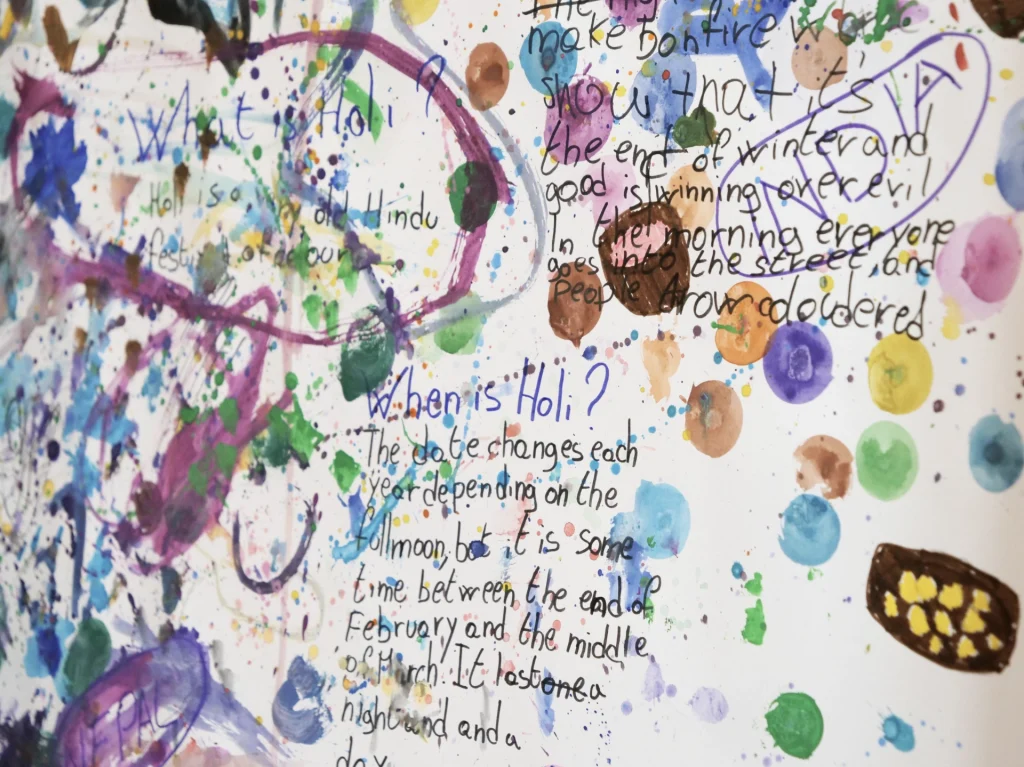 What is Holi ?
Holi is a very old Hindu
festival of colour
make bonfire
show that it's
the end of winter and
good is winning over evil
In the morning everyone
goes into the street, and
people
INDIA
When is Holi?
The date changes each
year depending on the
fullmoon, but it is some
time between the end of
February and the middle
of March. It last one a
night and and a
day
NEPAL